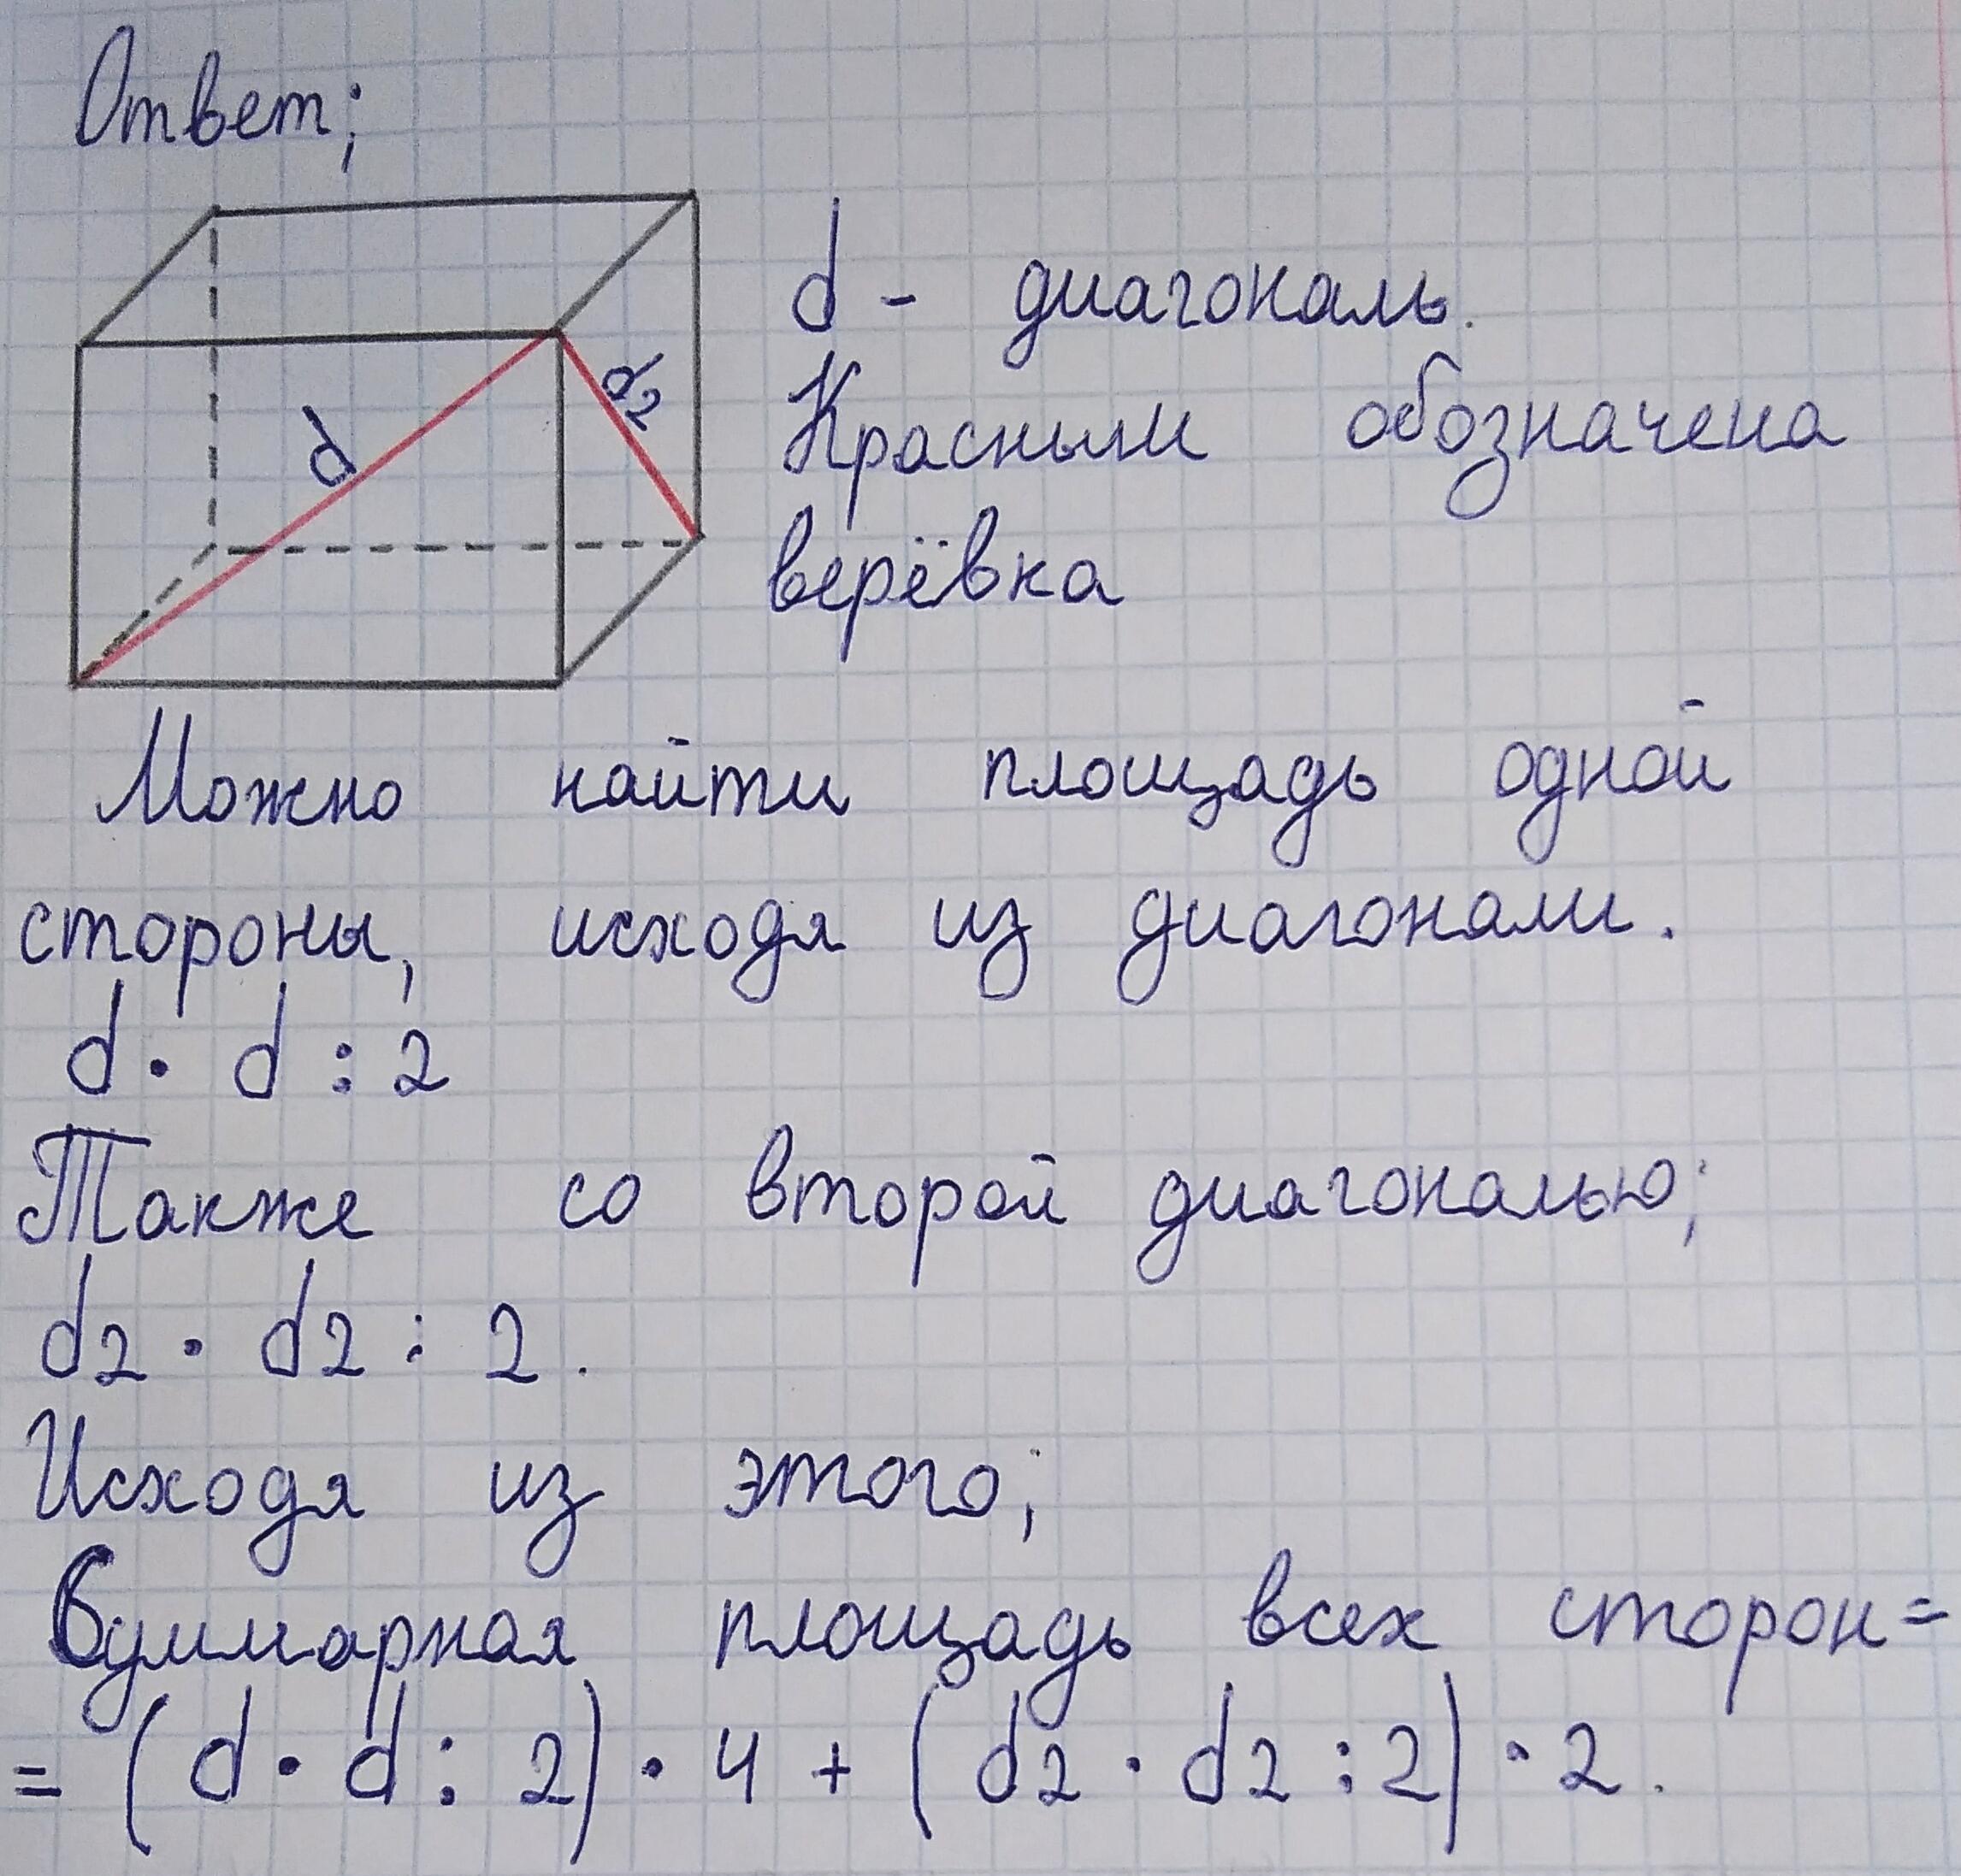 Ответ;
d
d2
d - диагональ.
Красным обозначена
верёвка
Можно найти площадь одной
стороны, исходя из диагонали.
d · d : 2
Также со второй диагональю;
d2 · d2 : 2.
Исходя из этого;
Суммарная площадь всех сторон=
= (d · d : 2) · 4 + (d2 · d2 : 2) · 2.